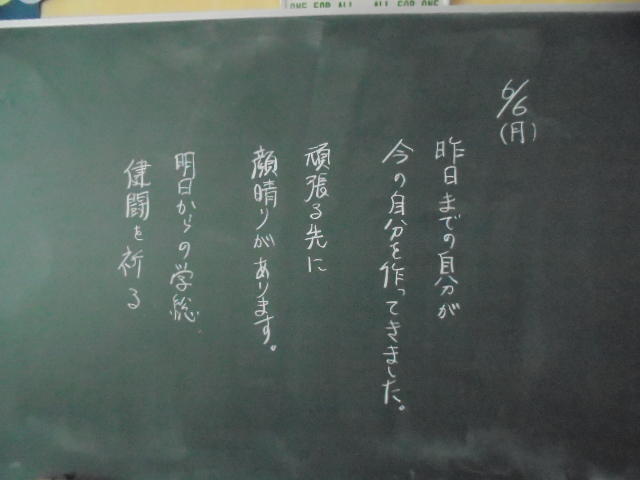 ONE FOR ALL ALL FOR ONE
6/6
(月)
昨日までの自分が
今の自分を作ってきました。
頑張る先に
顔晴りがあります。
明日からの学総、
健闘を祈る